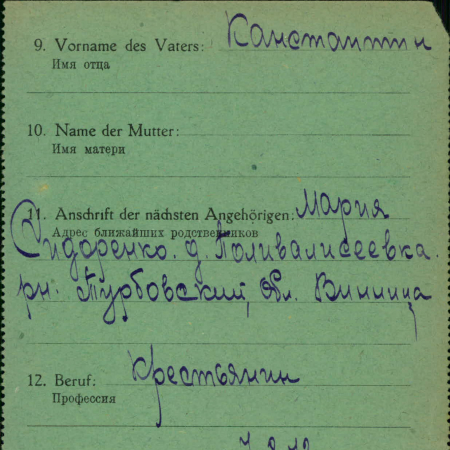 9. Vorname des Vaters: Канстантин
Имя отца
10. Name der Mutter:
Имя матери
11. Anschrift der nächsten Angehörigen: Мария
Адрес ближайших родственников
Сидоренко. д. Поливалисеевка.
рн. Турбовский, Вл. Винница
12. Beruf: Крестьянин
Профессия